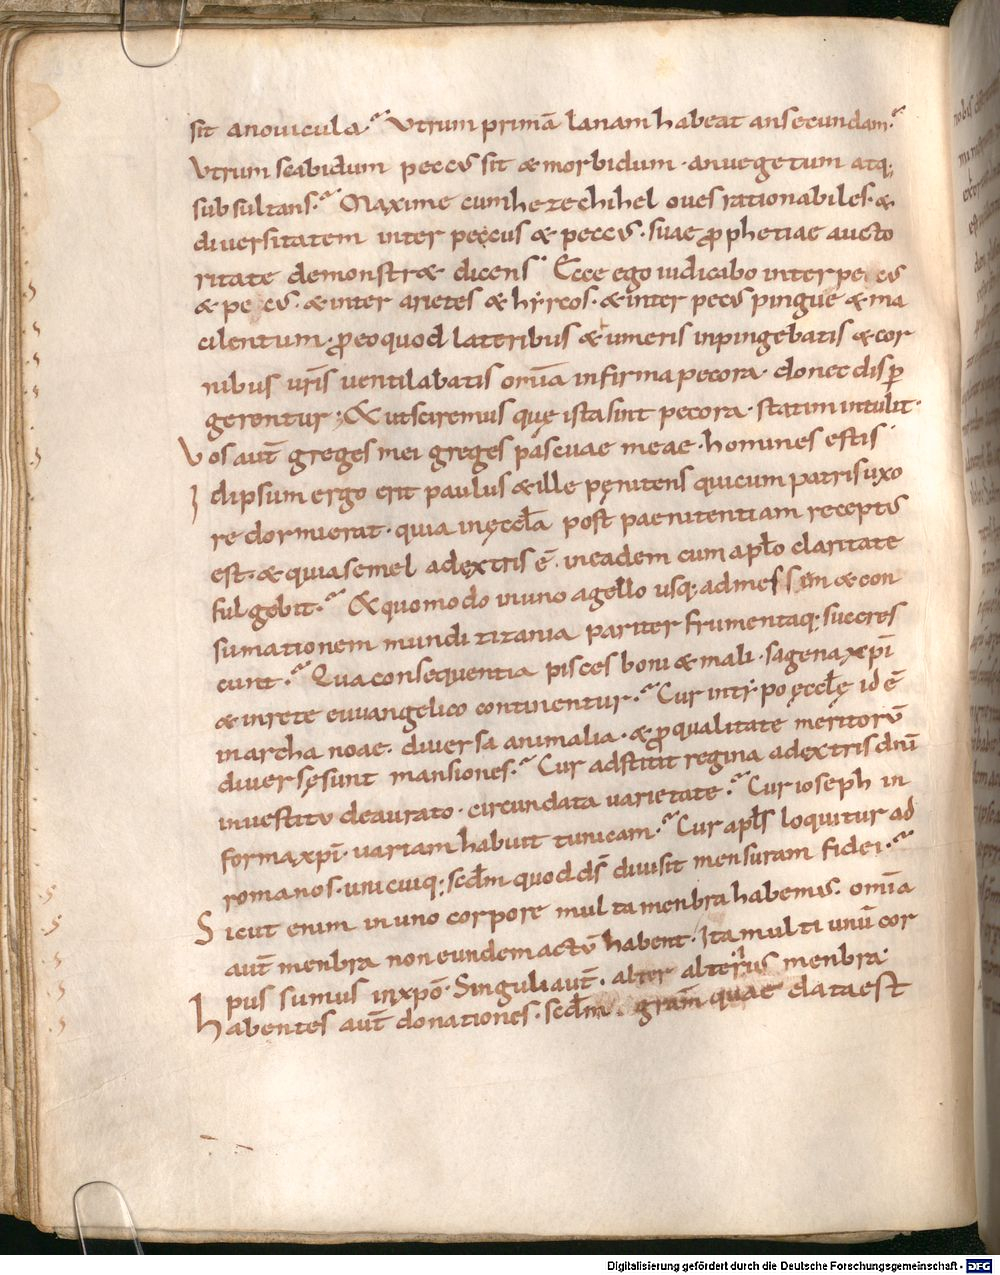 sit anouicula? Vtrum primā lanam habeat an secundam?
Vtrum scabidum peccus sit & morbidum · anuegetum atq;
subsultans? Maxime cum hezechihel oues rationabiles · &
diuersitatem inter peccus & peccus · suae ꝓphetiae aucto
ritate demonstr& dicens · Ecce ego iudicabo inter pe cus
& pe cus · & inter arietes & hyrcos · & inter pecus pingue & ma
cilentum · ꝓeo quod latteribus & umeris inpingebatis & cor
nibus ur̄is uentilabatis omīa infirma pecora · donec disꝑ
gerentur ; & ut sciremus quę ista sint pecora · statim intulit ·
Vos aut̄ greges mei greges páscuae meae · homines estis ·
Idipsum ergo erit paulus & ille pęnitens qui cum patris uxo
re dormierat · quia in ęccl̄a post paenitentiam receptus
est · & quia semel adextris ē · in eadem cum apl̄o claritate
fulgebit? & quomodo in uno agello usq; ad messem & con
sumationem mundi zizania pariter frumentaq; succres
cunt? Qua consequentia pisces boni & mali · sagena xp̄i
& in rete euuangelico continentur? Cur in tẏpo ęccl̄ę id ē
in archa noae · diuersa animalia · & ꝓqualitate meritorū
diuersę sunt mansiones? Cur adstitit regina adextris dn̄i
in uestitu deaurato · circundata uarietate? Cur ioseph in
forma xp̄i · uariam habuit tunicam? Cur apl̄s loquitur ad
romanos · unicuiq; scd̄m quod d̄s diuisit mensuram fidei?
Sicut enim in uno corpore multa menbra habemus · omīa
aut̄ menbra non eundem actū habent · Ita multi unū cor
pus sumus in xp̄o · Singuli aut̄ · alter alterius menbra ·
Habentes aut̄ donationes · scd̄m · gram̄ quae data est
Digitalisierung gefördert durch die Deutsche Forschungsgemeinschaft - DFG